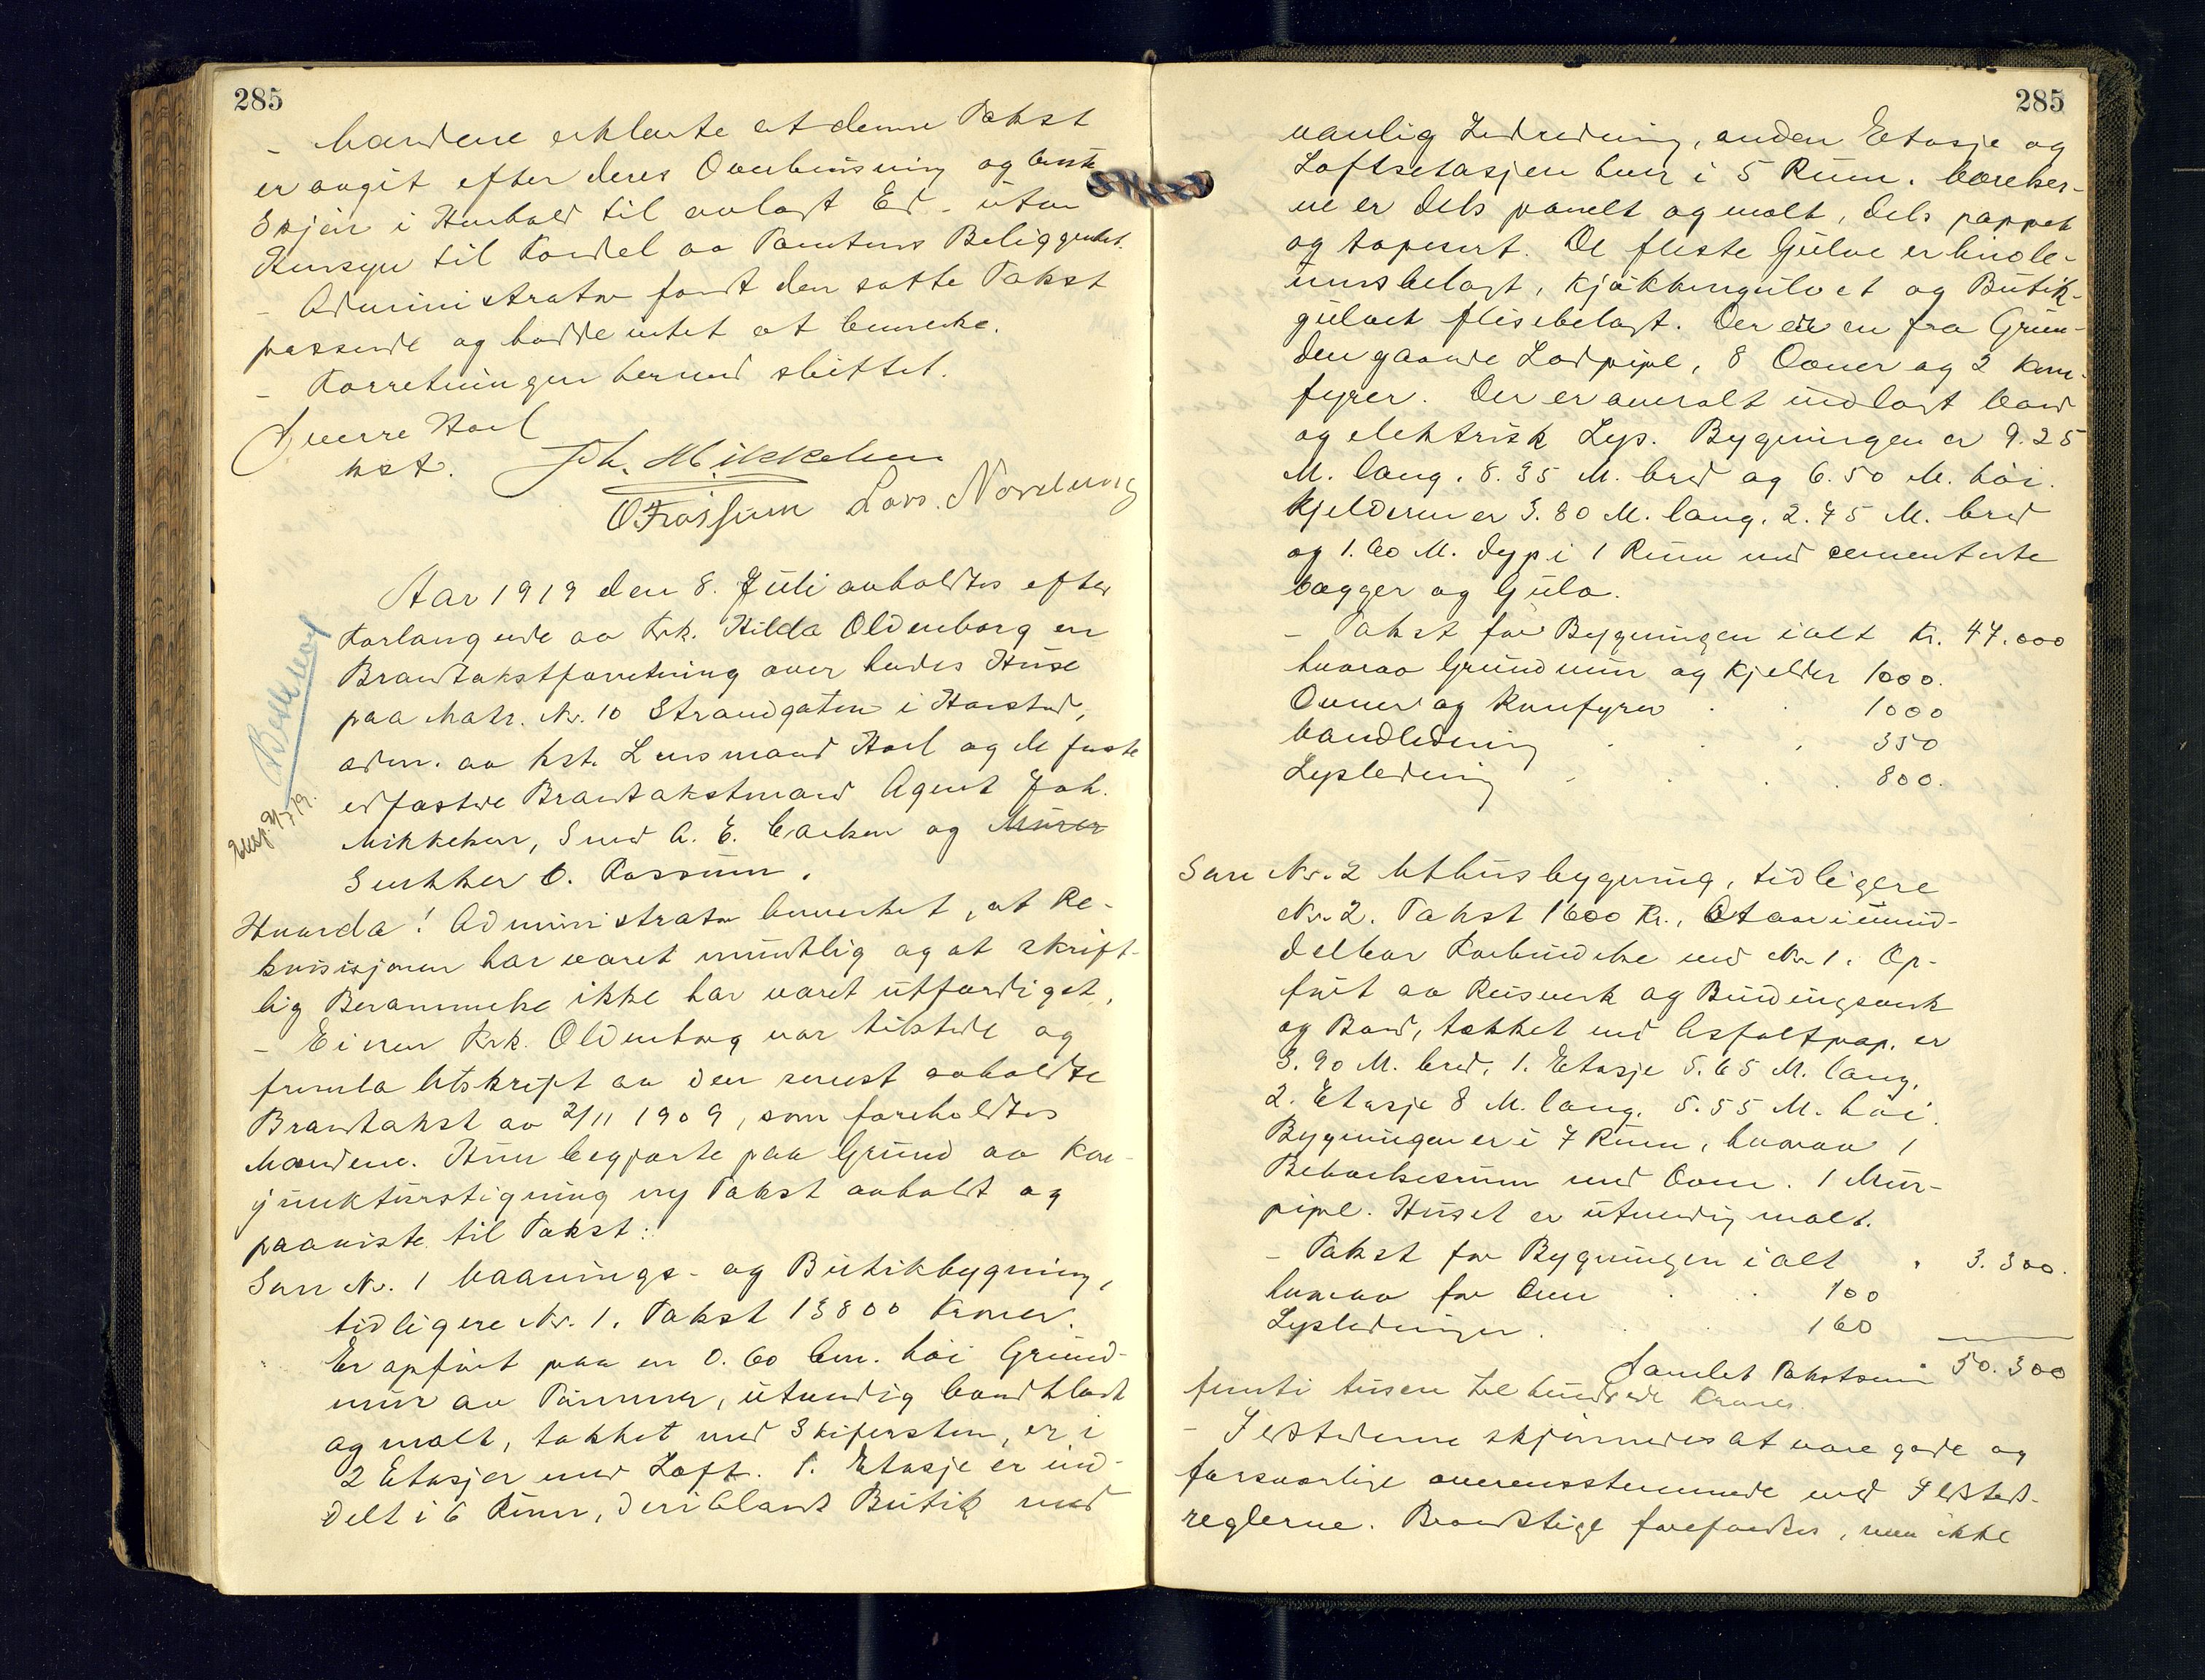 285
- Mændene erklærte at denne Takst
er avgit efter deres Overbevisning og beste
Skjøn i Henhold til avlagt Ed - uten
Hensyn til Fordel av Tomtens Beliggenhet.
- Administrator fandt den satte Takst
passende og hadde intet at bemerke.
- Forretningen hermed sluttet.
Sverre Hoel
kst. Joh. Mikkelsen
O Fossum Lars. Nordeng
Aar 1919 den 8. Juli avholdtes efter
Forlangende av Frk. Hilda Oldenborg en
Brandtakstforretning over hendes Huse
paa Matr. Nr. 10 Strandgaten i Harstad,
adm. av kst. Lensmand Hoel og de faste
edfæstede Brandtakstmænd Agent Joh.
Mikkelsen, Smed A. E. Carlsen og Murer
Snekker O. Fossum.
Eksp. 9/7 19.
Hvorda! Administrator bemerket, at Re-
kvisisjonen har været mundtlig og at skrift-
lig Berammelse ikke har været utfærdiget.
- Eieren Frk. Oldenborg var tilstede og
fremla Utskrift av den senest avholdte
Brandtakst av 2/11 1909, som foreholdtes
Mændene. Hun begjærte paa Grund av Kon-
junkturstigning ny Takst avholdt og
paaviste til Takst:
Som Nr. 1 Vaanings- og Butikbygning,
tidligere Nr. 1. Takst 13800 Kroner.
Er opført paa en 0.60 Cm. høi Grund-
mur av Tømmer, utvendig bordklædt
og malt, tækket med Skifersten, er i
2 Etasjer med Loft. 1. Etasje er ind-
delt i 6 Rum, deriblandt Butik med
285
vanlig Indredning, anden Etasje og
Loftsetasjen hver i 5 Rum. Værelser-
ne er dels panelt og malt, dels pappet
og tapesert. De fleste Gulve er linole-
umsbelagt, Kjøkkengulvet og Butik-
gulvet flisebelagt. Der er en fra Grun-
den gaaende Lodpipe, 8 Ovner og 2 Kom-
fyrer. Der er overalt indlagt Vand
og elektrisk Lys. Bygningen er 9.25
M. lang. 8.35 M. bred og 6.50 M. høi.
Kjelderen er 3.80 M. lang. 2.75 M. bred
og 1.60 M. dyp i 1 Rum med cementerte
Vægger og Gulv.
- Takst for Bygningen ialt Kr. 47.000
hvorav Grundmur og Kjelder 1000.
Ovner og Komfyrer . . 1000
Vandledning . . . 350
Lysledning . . . 800.
Som Nr. 2 Uthusbygning, tidligere
Nr. 2. Takst 1600 Kr., Staar i umid-
delbar Forbindelse med Nr. 1. Op-
ført av Reisverk og Bindingsverk
og Bord, tækket med Asfaltpap. er
3.90 M. bred, 1. Etasje 5.65 M. lang,
2. Etasje 8 M. lang. 5.55 M. høi.
Bygningen er i 7 Rum, hvorav 1
Beboelsesrum med Ovn. 1 Mur-
pipe. Huset er utvendig malt.
- Takst for Bygningen ialt . 3.300.
hvorav for Ovn . . 100
Lysledninger . . . 160
Samlet Takstsum 50.300
femti tusen tre hundrede Kroner.
- Ildstederne skjønnedes at være gode og
forsvarlige overensstemmende med Ildsteds-
reglerne. Brandstige forefandtes, men ikke